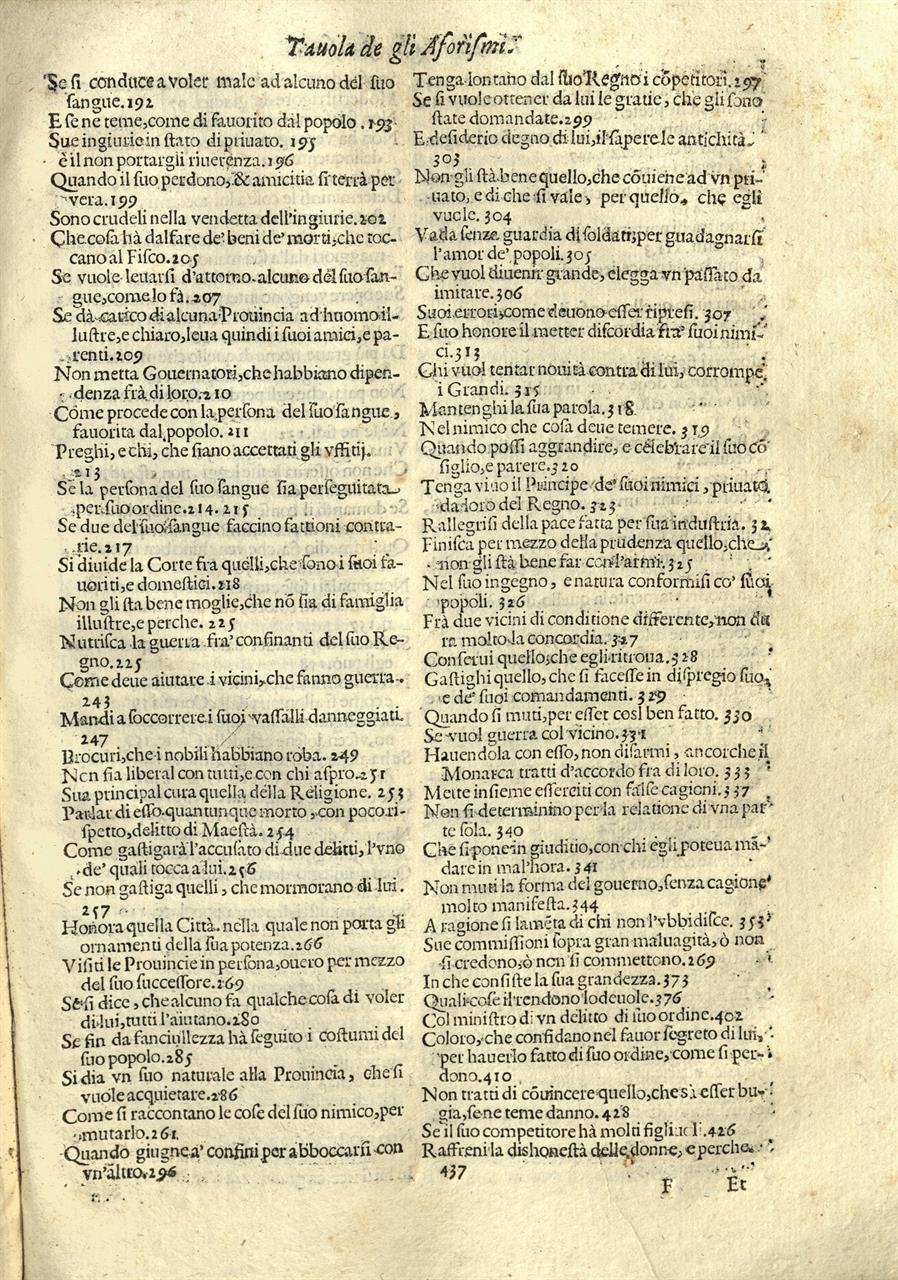 Tauola de gli Aforismi.
Se si conduce a voler male ad alcuno del suo
sangue.192
E se ne teme, come di fauorito dal popolo.193
Sue ingiurie in stato di priuato. 195
è il non portargli riuerenza.196
Quando il suo perdono, & amicitia si terrà per
vera.199
Sono crudeli nella vendetta dell'ingiurie.202
Che cosa hà dalfare de' beni de' morti, che toc-
cano al Fisco.205
Se vuole leuarsi d'attorno alcuno del suo san-
gue, come lo fà.207
Se dà carico di alcuna Prouincia ad huomo il-
lustre, e chiaro, leua quindi i suoi amici, e pa-
renti.209
Non metta Gouernatori, che habbiano dipen-
denza frà di loro.210
Come procede con la persona del suo sangue,
fauorita dal popolo. 211
Preghi, e chi, che siano accettati gli vffitij.
213
Se la persona del suo sangue sia perseguitata
per suo ordine.214. 215
Se due del suo sangue faccino fattioni contra-
rie.217
Si diuide la Corte fra quelli, che sono i suoi fa-
uoriti, e domestici.218
Non gli sta bene moglie, che nō sia di famiglia
illustre, e perche. 225
Nutrisca la guerra fra' confinanti del suo Re-
gno.225
Come deue aiutare i vicini, che fanno guerra.
243
Mandi a soccorrere i suoi vassalli danneggiati.
247
Procuri, che i nobili habbiano roba. 249
Non sia liberal con tutti, e con chi aspro.251
Sua principal cura quella della Religione. 253
Parlar di esso quantunque morto, con poco ri-
spetto, delitto di Maestà. 254
Come gastigarà l'accusato di due delitti, l'vno
de' quali tocca a lui.256
Se non gastiga quelli, che mormorano di lui.
257
Honora quella Città nella quale non porta gli
ornamenti della sua potenza.266
Visiti le Prouincie in persona, ouero per mezzo
del suo successore.269
Se si dice, che alcuno fa qualche cosa di voler
di lui, tutti l'aiutano.280
Se fin da fanciullezza hà seguito i costumi del
suo popolo.285
Si dia vn suo naturale alla Prouincia, che si
vuole acquietare.286
Come si raccontano le cose del suo nimico, per
mutarlo.261
Quando giugne a' confini per abboccarsi con
vn'altro.296
Tenga lontano dal suo Regno i cōpetitori.297
Se si vuole ottener da lui le gratie, che gli sono
state domandate.299
E desiderio degno di lui, il sapere le antichità.
303
Non gli stà bene quello, che cōuiene ad vn pri-
uato, e di che si vale, per quello, che egli
vuole. 304
Vada senza guardia di soldati, per guadagnarsi
l'amor de' popoli.305
Che vuol diuenir grande, elegga vn passato da
imitare.306
Suoi errori, come deuono esser ripresi. 307
E suo honore il metter discordia fra' suoi nimi-
ci.313
Chi vuol tentar nouità contra di lui, corrompe
i Grandi. 315
Mantenghi la sua parola.318
Nel nimico che cosa deue temere. 319
Quando possi aggrandire, e celebrare il suo cō
siglio, e parere.320
Tenga viuo il Principe de' suoi nimici, priuato
da loro del Regno. 323
Rallegrisi della pace fatta per sua industria. 32
Finisca per mezzo della prudenza quello, che
non gli stà bene far con l'armi.325
Nel suo ingegno, e natura conformisi co' suoi
popoli. 326
Frà due vicini di conditione differente, non du
ra molto la concordia.327
Conserui quello, che egli ritroua.328
Gastighi quello, che si facesse in dispregio suo,
e de' suoi comandamenti. 329
Quando si muti, per esser così ben fatto. 330
Se vuol guerra col vicino.331
Hauendola con esso, non disarmi, ancorche il
Monarca tratti d'accordo fra di loro. 333
Mette insieme esserciti con false cagioni.337
Non si determinino per la relatione di vna par
te sola. 340
Che si pone in giuditio, con chi egli poteua mā-
dare in mal'hora. 341
Non muti la forma del gouerno, senza cagione
molto manifesta.344
A ragione si lamēta di chi non l'vbbidisce. 353
Sue commissioni sopra gran maluagità, ò non
si credono, ò non si commettono.269
In che consiste la sua grandezza.373
Quali cose il rendono lodeuole.376
Col ministro di vn delitto di suo ordine.402
Coloro, che confidano nel fauor segreto di lui,
per hauerlo fatto di suo ordine, come si per-
dono.410
Non tratti di cōuincere quello, che sà esser bu-
gia, se ne teme danno. 428
Se il suo competitore hà molti figliuoli.426
Raffreni la dishonestà delle donne, e perche.
437
F Et